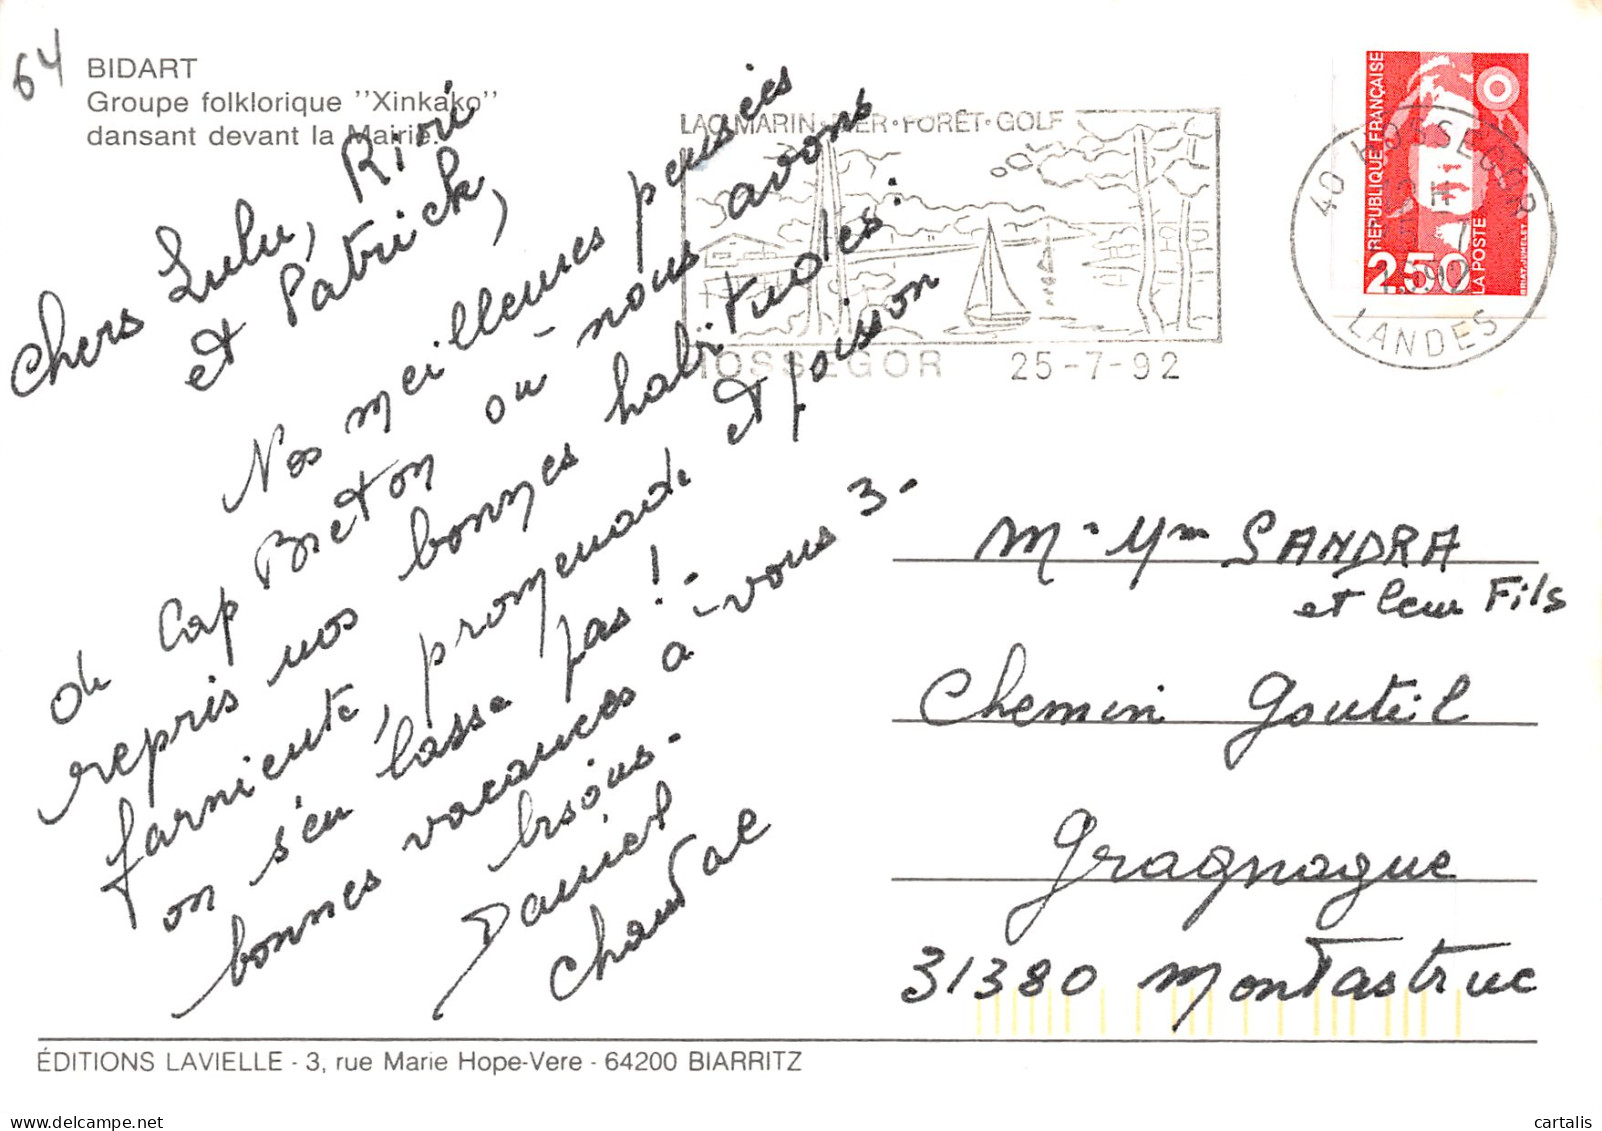 64
BIDART
Groupe folklorique ''Xinkako''
dansant devant la Mairie.
Chers Lulu, Riri
et Patrick,
Nos meilleures pensées
de Cap Breton où nous avons
repris nos bonnes habitudes.
farniente, promenade et poisson
on s'en lasse pas!
bonnes vacances à vous 3
bisous
Daniel
Chantal
LAC MARIN·MER·FORÊT·GOLF
HOSSEGOR 25-7-92
40 HOSSEGOR
LANDES
RÉPUBLIQUE FRANÇAISE
2,50
LA POSTE
BRIAT-JUMELET
M. Mm SANDRA
et leur Fils
Chemin Gouteil
Gragnague
31380 Montastruc
ÉDITIONS LAVIELLE - 3, rue Marie Hope-Vere - 64200 BIARRITZ
cartalis